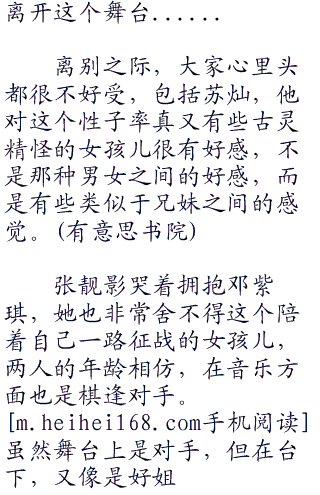 离开这个舞台......
离别之际，大家心里头
都很不好受，包括苏灿，他
对这个性子率真又有些古灵
精怪的女孩儿很有好感，不
是那种男女之间的好感，而
是有些类似于兄妹之间的感
觉。(有意思书院)
张靓影哭着拥抱邓紫
琪，她也非常舍不得这个陪
着自己一路征战的女孩儿，
两人的年龄相仿，在音乐方
面也是棋逢对手。
[m.heihei168.com手机阅读]
虽然舞台上是对手，但在台
下，又像是好姐